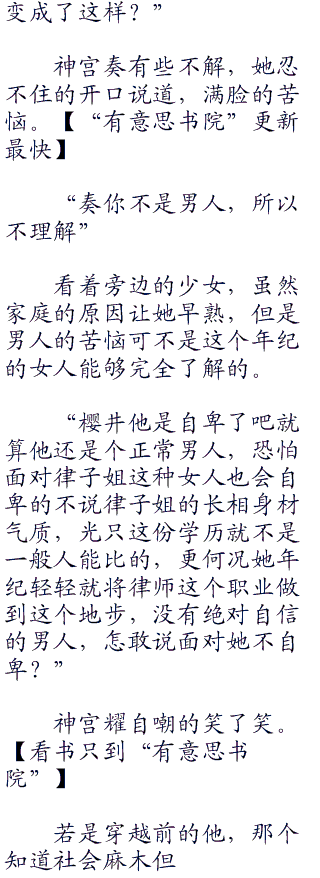 变成了这样？”
神宫奏有些不解，她忍
不住的开口说道，满脸的苦
恼。【“有意思书院”更新
最快】
“奏你不是男人，所以
不理解”
看着旁边的少女，虽然
家庭的原因让她早熟，但是
男人的苦恼可不是这个年纪
的女人能够完全了解的。
“樱井他是自卑了吧就
算他还是个正常男人，恐怕
面对律子姐这种女人也会自
卑的不说律子姐的长相身材
气质，光只这份学历就不是
一般人能比的，更何况她年
纪轻轻就将律师这个职业做
到这个地步，没有绝对自信
的男人，怎敢说面对她不自
卑？”
神宫耀自嘲的笑了笑。
【看书只到“有意思书
院”】
若是穿越前的他，那个
知道社会麻木但